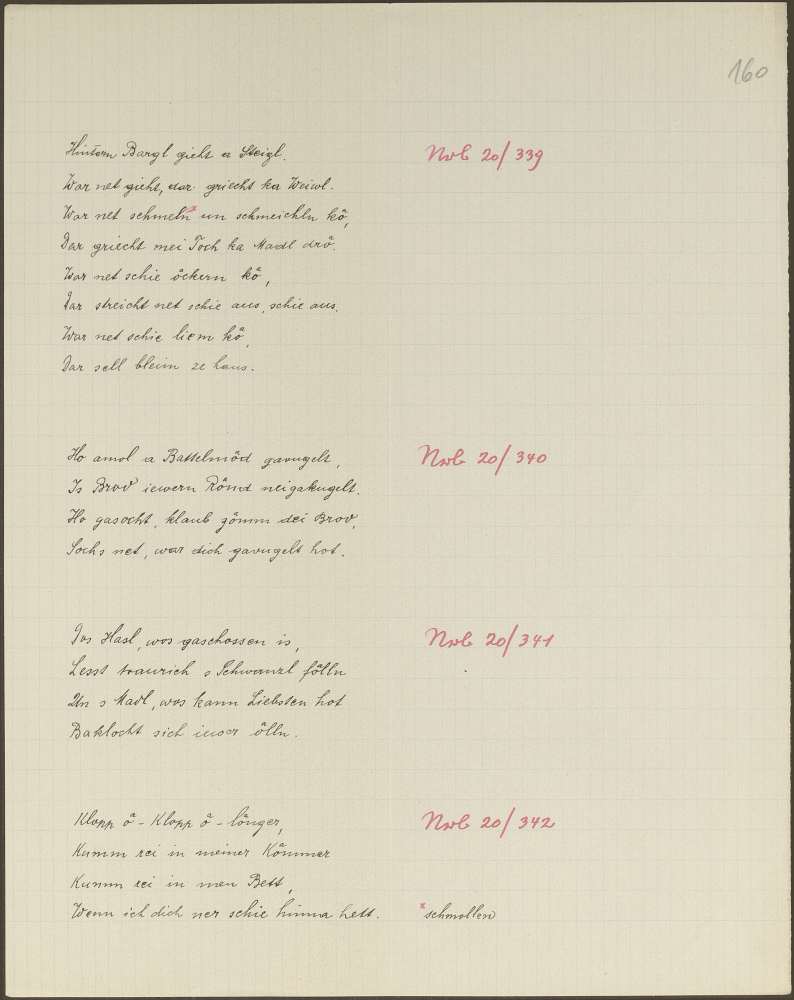 160
Hintern Bargl gieht a Steigl.
Nrb 20/339
War net gieht, dar griecht ka Weiwl.
War net schmeln x un schmeichln kå,
Dar griecht mei Toch ka Madl drå.
War net schie åckern kå,
Dar streicht net schie aus, schie aus.
War net schie liem kå,
Dar sell bleim ze haus.
Ho amol a Battelmöd gavugelt,
Nrb 20/340
Is Brod iewern Römd neigakugelt.
Ho gasocht, klaub zömm dei Brod,
Sochs net, war dich gavugelt hot.
Dos Hasl, wos gaschossen is,
Nrb 20/341
Lesst traurich s Schwanzl fölln
Un s Madl, wos kann Liebsten hot
Baklocht sich iewer ölln.
Klopp å - Klopp å - långer,
Nrb 20/342
Kumm rei in meiner Kömmer
Kumm rei in men Bett,
Wenn ich dich ner schie hinna hett.
x schmollen